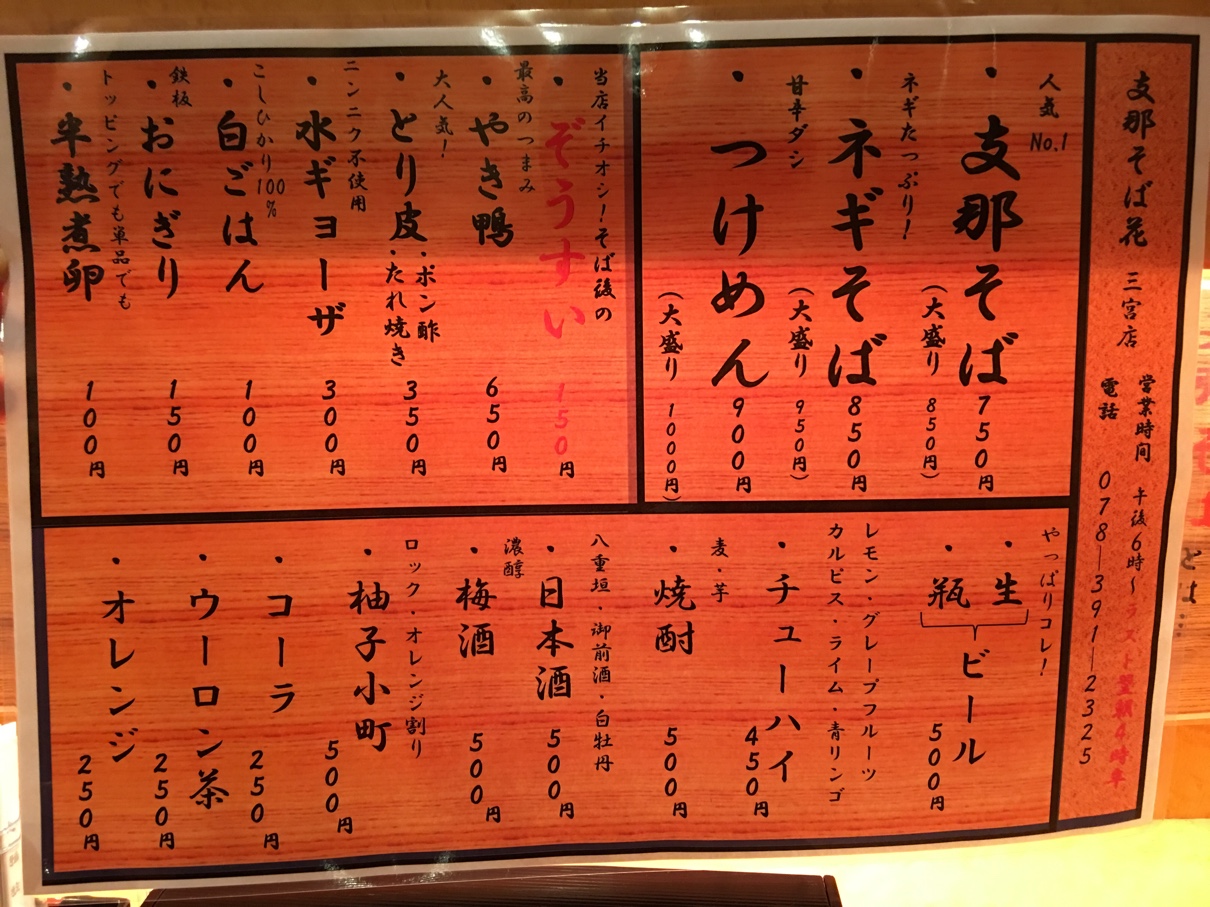 支那そば花 三宮店
営業時間 午後6時～ラスト翌朝4時半
電話 078―391―2325
人気No.1
・支那そば 750円
(大盛り 850円)
ネギたっぷり!
・ネギそば 850円
(大盛り 950円)
甘辛ダシ
・つけめん 900円
(大盛り 1000円)
当店イチオシ!そば後の
・ぞうすい 150円
最高のつまみ
・やき鴨 650円
大人気!
・とり皮 ・ポン酢 ・たれ焼き 350円
ニンニク不使用
・水ギョーザ 300円
こしひかり100%
・白ごはん 100円
鉄板
・おにぎり 150円
トッピングでも単品でも
・半熟煮卵 100円
やっぱりコレ!
・生
・瓶
ビール 500円
レモン・グレープフルーツ
カルピス・ライム・青リンゴ
・チューハイ 450円
麦・芋
・焼酎 500円
八重垣・御前酒・白牡丹
・日本酒 500円
濃醇
・梅酒 500円
ロック・オレンジ割り
・柚子小町 500円
・コーラ 250円
・ウーロン茶 250円
・オレンジ 250円